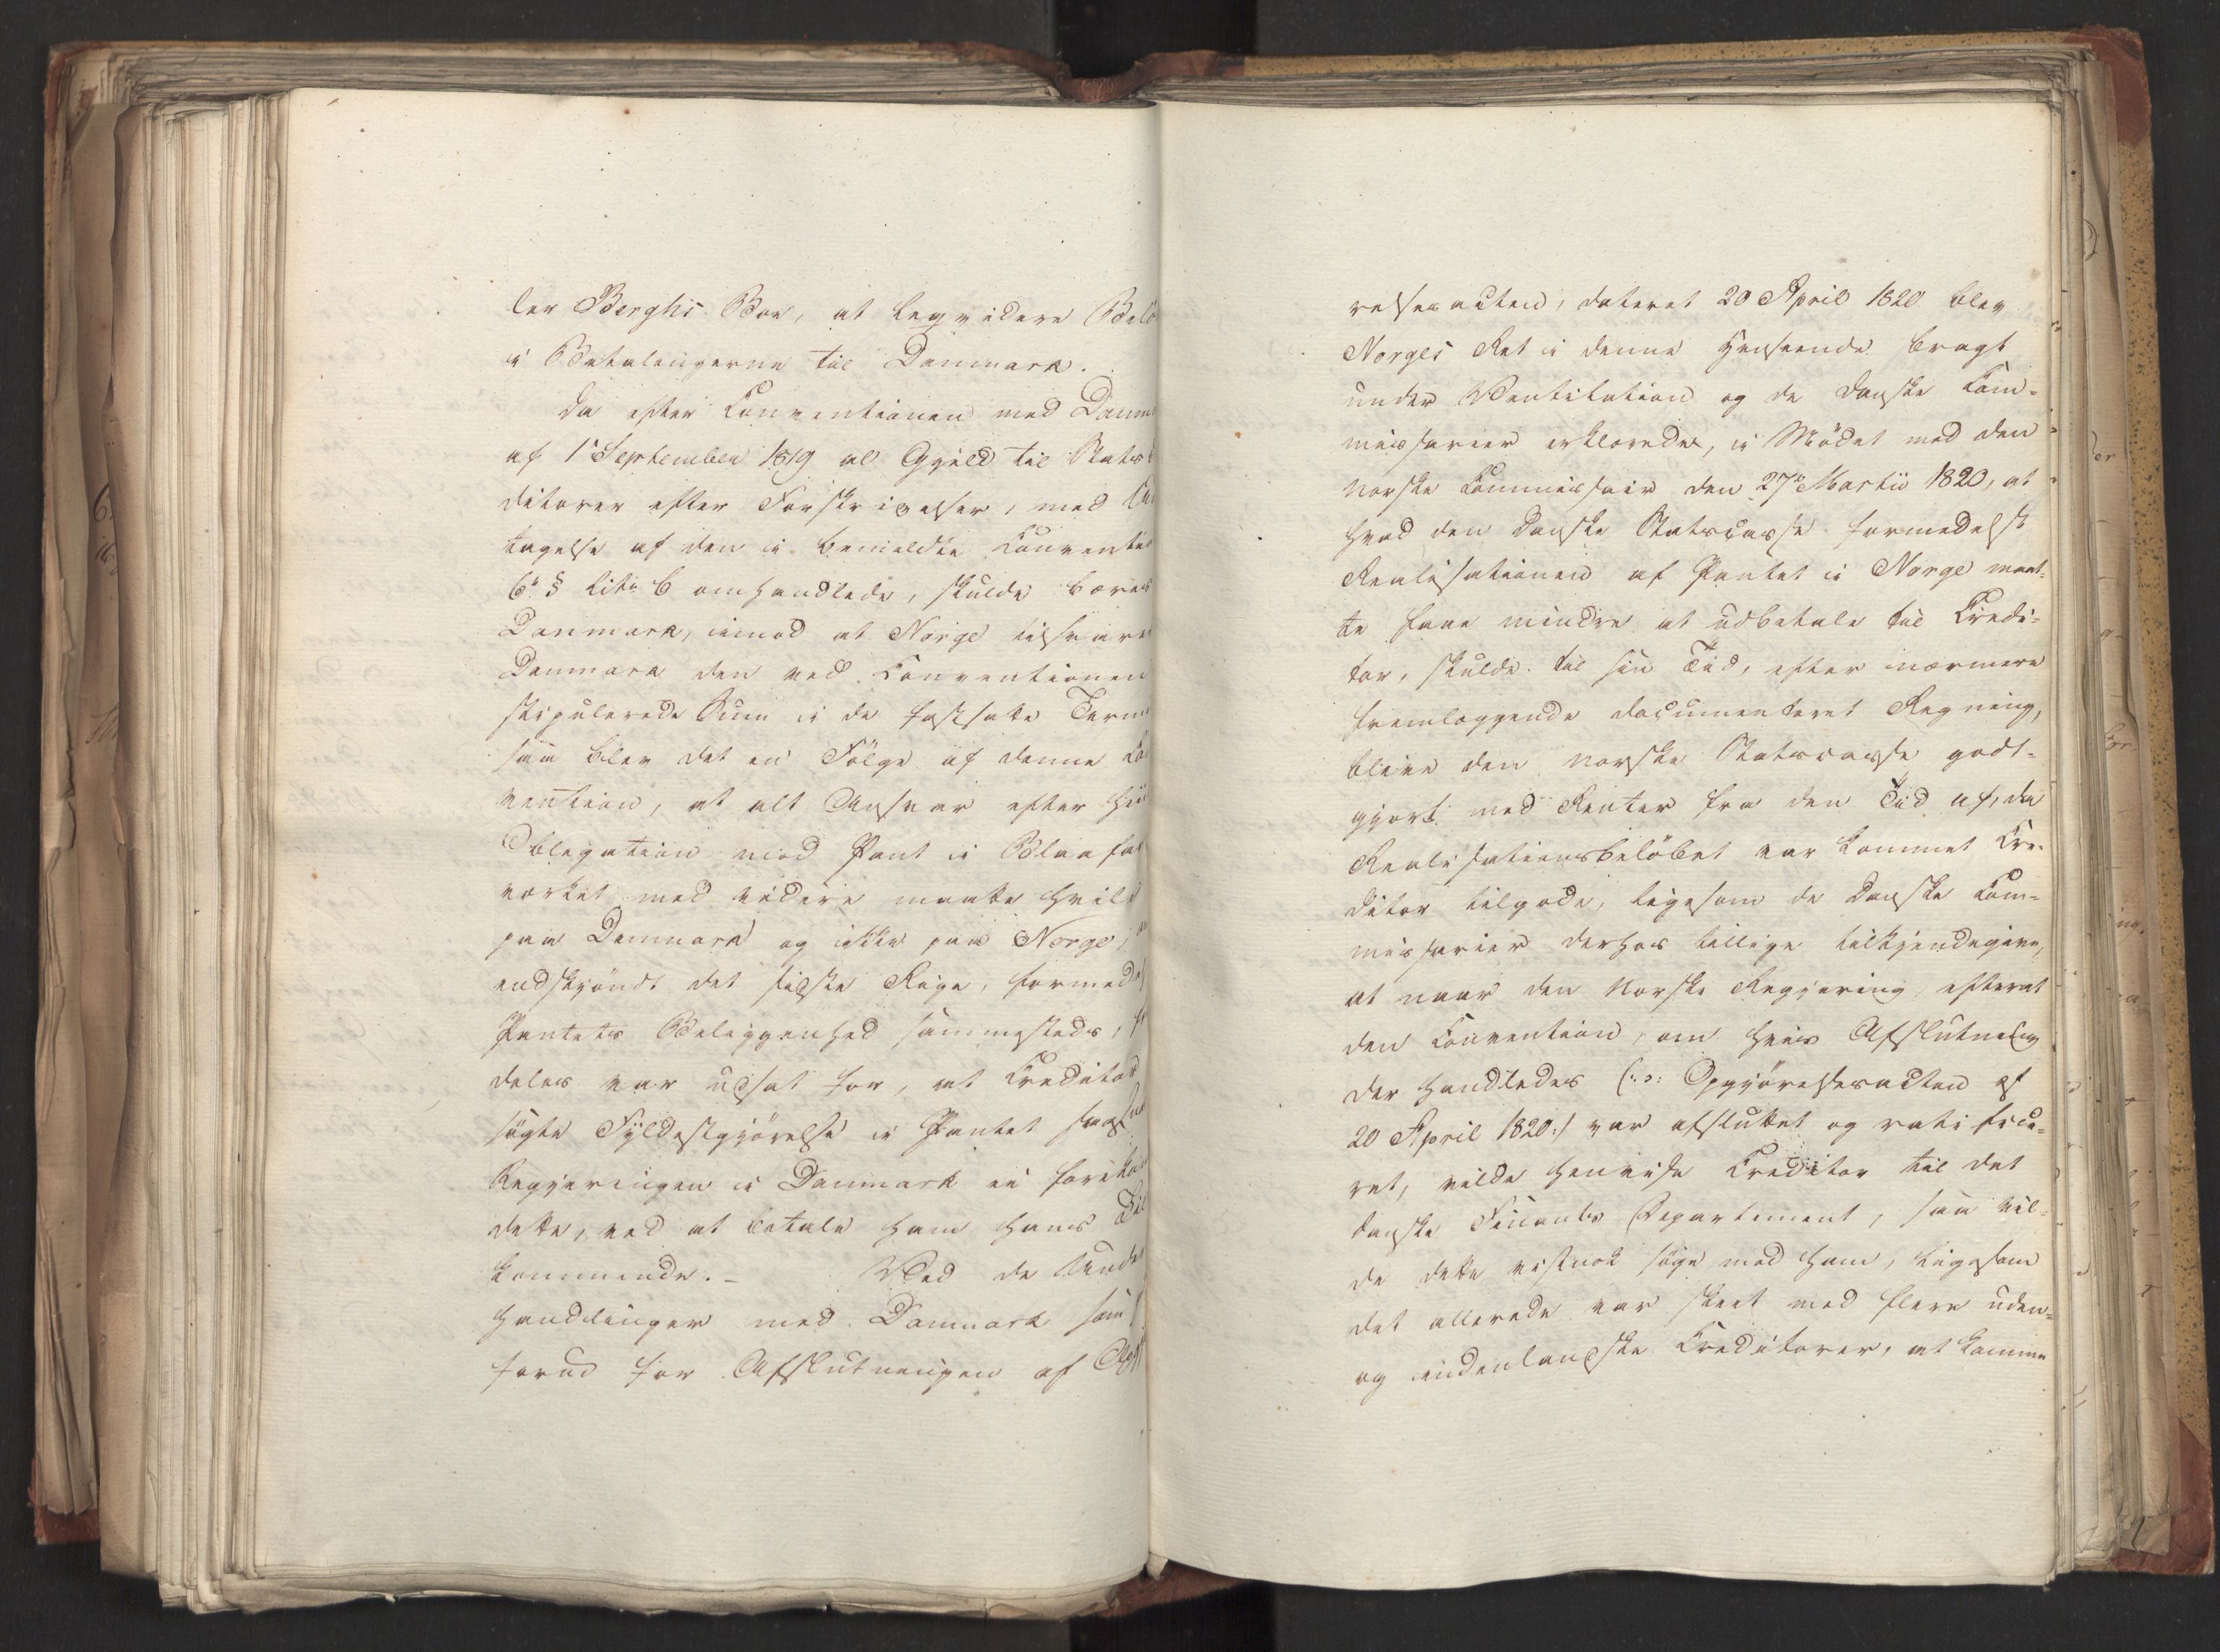 ler Berghs Boe, at liqvidere
i Betalingerne til Danmark.
Da efter Conventionen med
af 1 September 1819 al Gjeld til
ditorer efter Forskrivelser, med
tagelse af den i bemeldte
6te § Lit. b omhandlede, skulde bæres
Danmark, imod at Norge tilsvarer
Danmark den ved Conventionen
stipulerede Sum i de fastsatte
saa blev det en Følge af denne
vention, at alt Ansvar efter
Obligation mod Pant i
værket med videre maatte hvile
paa Danmark og ikke paa Norge,
endskjöndt det sidste Rige,
Pantets Beliggenhed sammesteds,
deles var udsat for, at Creditor
sögte Fyldestgjörelse i Pantet
Regjeringen i Danmark ei
dette, ved at betale ham hans
kommende. – Ved de
handlinger med Danmark som
forud for Afslutningen af
relsesacten, dateret 20 April 1820 blev
Norges Ret i denne Henseende bragt
under Ventilation og de danske Com=
missarier erklærede, i Mödet med den
norske Commissair den 27de Martii 1820, at
hvad den danske Statscasse formedelst
Realisationen af Pantet i Norge maat=
te faae mindre at udbetale til Credi=
tor, skulde til sin Tid, efter nærmere
fremlæggende documenteret Regning,
blive den norske Statscasse godt=
gjort med Renter fra den Tid af, da
Realisationsbelöbet var kommet Cre=
ditor tilgode, ligesom de danske Com=
missarier derhos tillige tilkjendegave,
at naar den norske Regjering, efterat
den Convention, om hvis Afslutning
der handledes (:ɔ: Opgjörelsesacten af
20 April 1820:/ var afsluttet og ratifice=
ret, vilde henvise Creditor til det
danske Finants Departement, saa vil=
de dette vistnok söge med ham, ligesom
det allerede var skeet med flere uden=
og indenlandske Creditorer, at komme